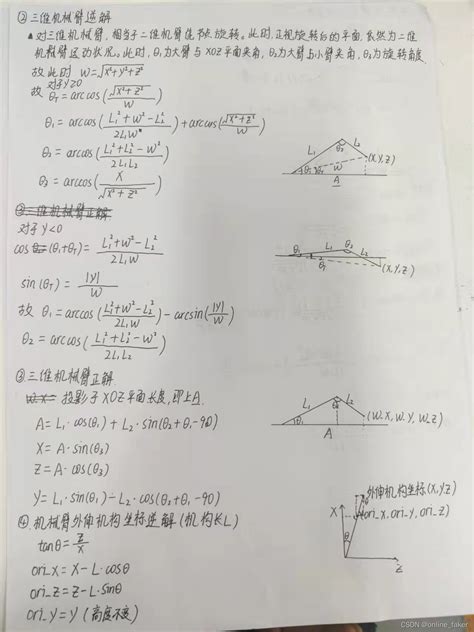 ② 三维机械臂逆解
▲ 对三维机械臂，相当于二维机械臂绕节点旋转。此时，正视旋转后的平面，依然为二维
机械臂运动状况。此时，θ₁为大臂与XOZ平面夹角，θ₂为大臂与小臂夹角，θ₃为旋转角度
故此时 W=√(X²+Y²+Z²)
对于Y≥0
故 θT=arccos(√(X²+Z²)/W)
θ₁=arccos((L₁²+W²-L₂²)/(2L₁W))+arccos(√(X²+Z²)/W)
θ₂=arccos((L₁²+L₂²-W²)/(2L₁L₂))
θ₃=arccos(X/√(X²+Z²))
L₁ θ₂ L₂ (X,Y,Z)
θ₁ θT W
A
③三维机械臂正解
对于Y<0
cos(θ₁+θT)=(L₁²+W²-L₂²)/(2L₁W)
sin(θT)=|Y|/W
故 θ₁=arccos((L₁²+W²-L₂²)/(2L₁W))-arcsin(|Y|/W)
θ₂=arccos((L₁²+L₂²-W²)/(2L₁L₂))
L₁ θ₂ L₂
θT
(X,Y,Z)
③ 三维机械臂正解
投影于XOZ平面长度，即上A.
A=L₁·cos(θ₁)+L₂·sin(θ₂+θ₁-90)
X=A·sin(θ₃)
Z=A·cos(θ₃)
Y=L₁·sin(θ₁)-L₂·cos(θ₂+θ₁-90)
L₁ θ₂ L₂
θ₁ (W_X,W_Y,W_Z)
A
④ 机械臂外伸机构坐标逆解(机构长L)
tanθ=Z/X
ori_X=X-L·cosθ
ori_Z=Z-L·sinθ
ori_Y=Y(高度不变)
外伸机构坐标(X,Y,Z)
X (ori_X,ori_Y,ori_Z)
θ
Z
CSDN @online_faker